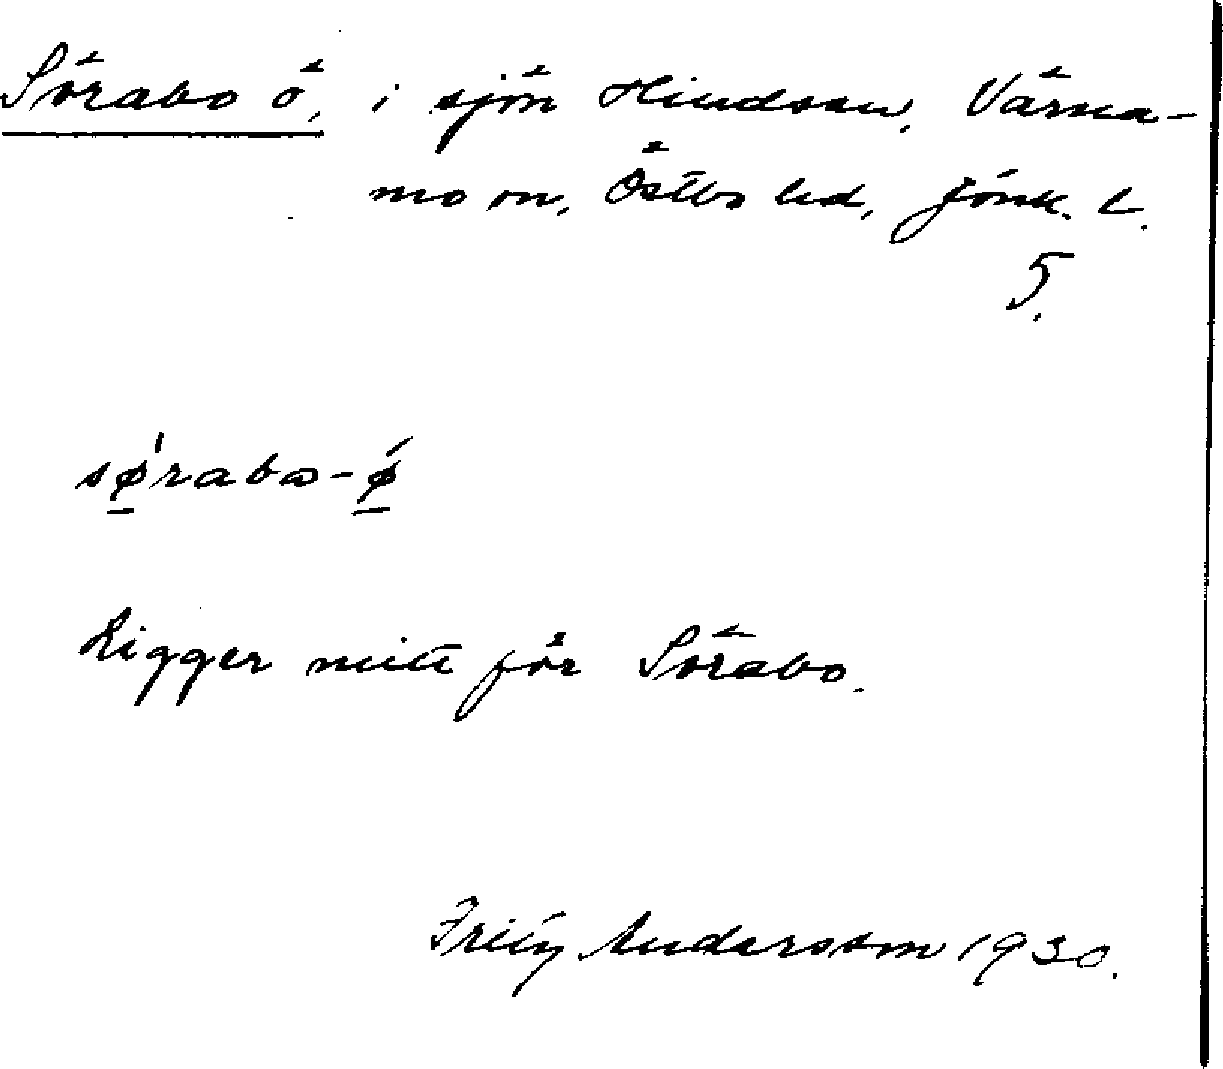 Sörabo ö, i sjön Hindsen, Värna-
mo sn, Östbo hd, Jönk. L.
5.
sø̱raba-ǿ̱
Ligger mitt för Sörabo.
Andersson 1930.